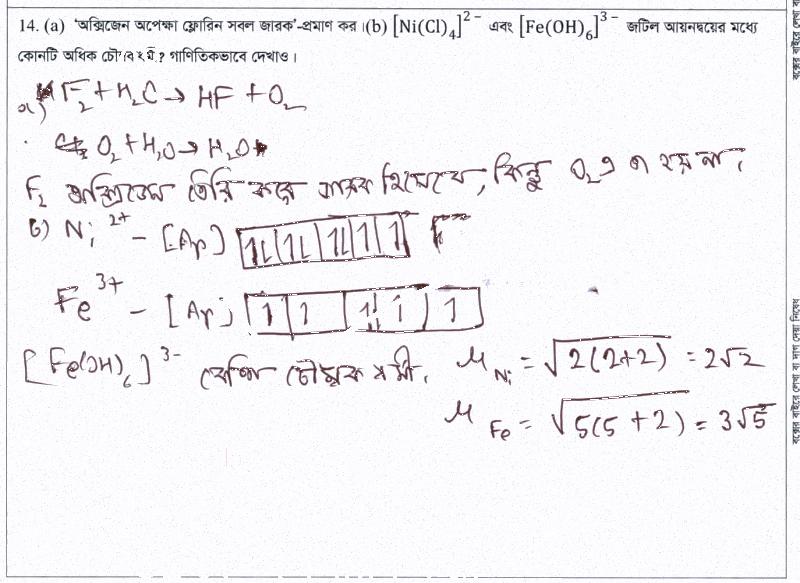 14. (a) ‘অক্সিজেন অপেক্ষা ফ্লোরিন সবল জারক’-প্রমাণ কর। (b) [Ni(Cl)₄]²⁻ এবং [Fe(OH)₆]³⁻ জটিল আয়নদ্বয়ের মধ্যে
কোনটি অধিক চৌম্বকধর্মী? গাণিতিকভাবে দেখাও।
a) F₂ + H₂O → HF + O₂
O₂ + H₂O → H₂O
F₂ অক্সিজেন তৈরি করে জারক হিসেবে, কিন্তু O₂ এ তা হয় না।
b) Ni²⁺ – [Ar] 1L 1L 1L 1 1
Fe³⁺ – [Ar] 1 1 1 1 1
[Fe(OH)₆]³⁻ বেশি চৌম্বক ধর্মী. μ Ni = √2(2+2) = 2√2
μ Fe = √5(5+2) = 3√5
বক্সের বাইরে লেখা বা দাগ দেয়া নিষেধ